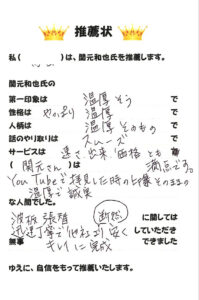 推薦状
私( )は、関元和也氏を推薦します。
関元和也氏の
第一印象は 温厚そう で
性格は やっぱり 温厚 で
人柄は 温厚そのもの で
話のやり取りは スムーズ で
サービスは 速さ 出来 価格とも 満点です。
( 関元さん )は
YouTubeで拝見した時の上像そのままの
温厚で誠実
な人間でした。
波板張替 断然 に関しては
迅速丁寧で他社より安くしていただき
無事 きれいに完成 できました
ゆえに、自信をもって推薦いたします。